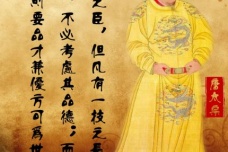 之臣，但凡有一技之長
不必考慮其品德；而
則要品才兼優方可為世